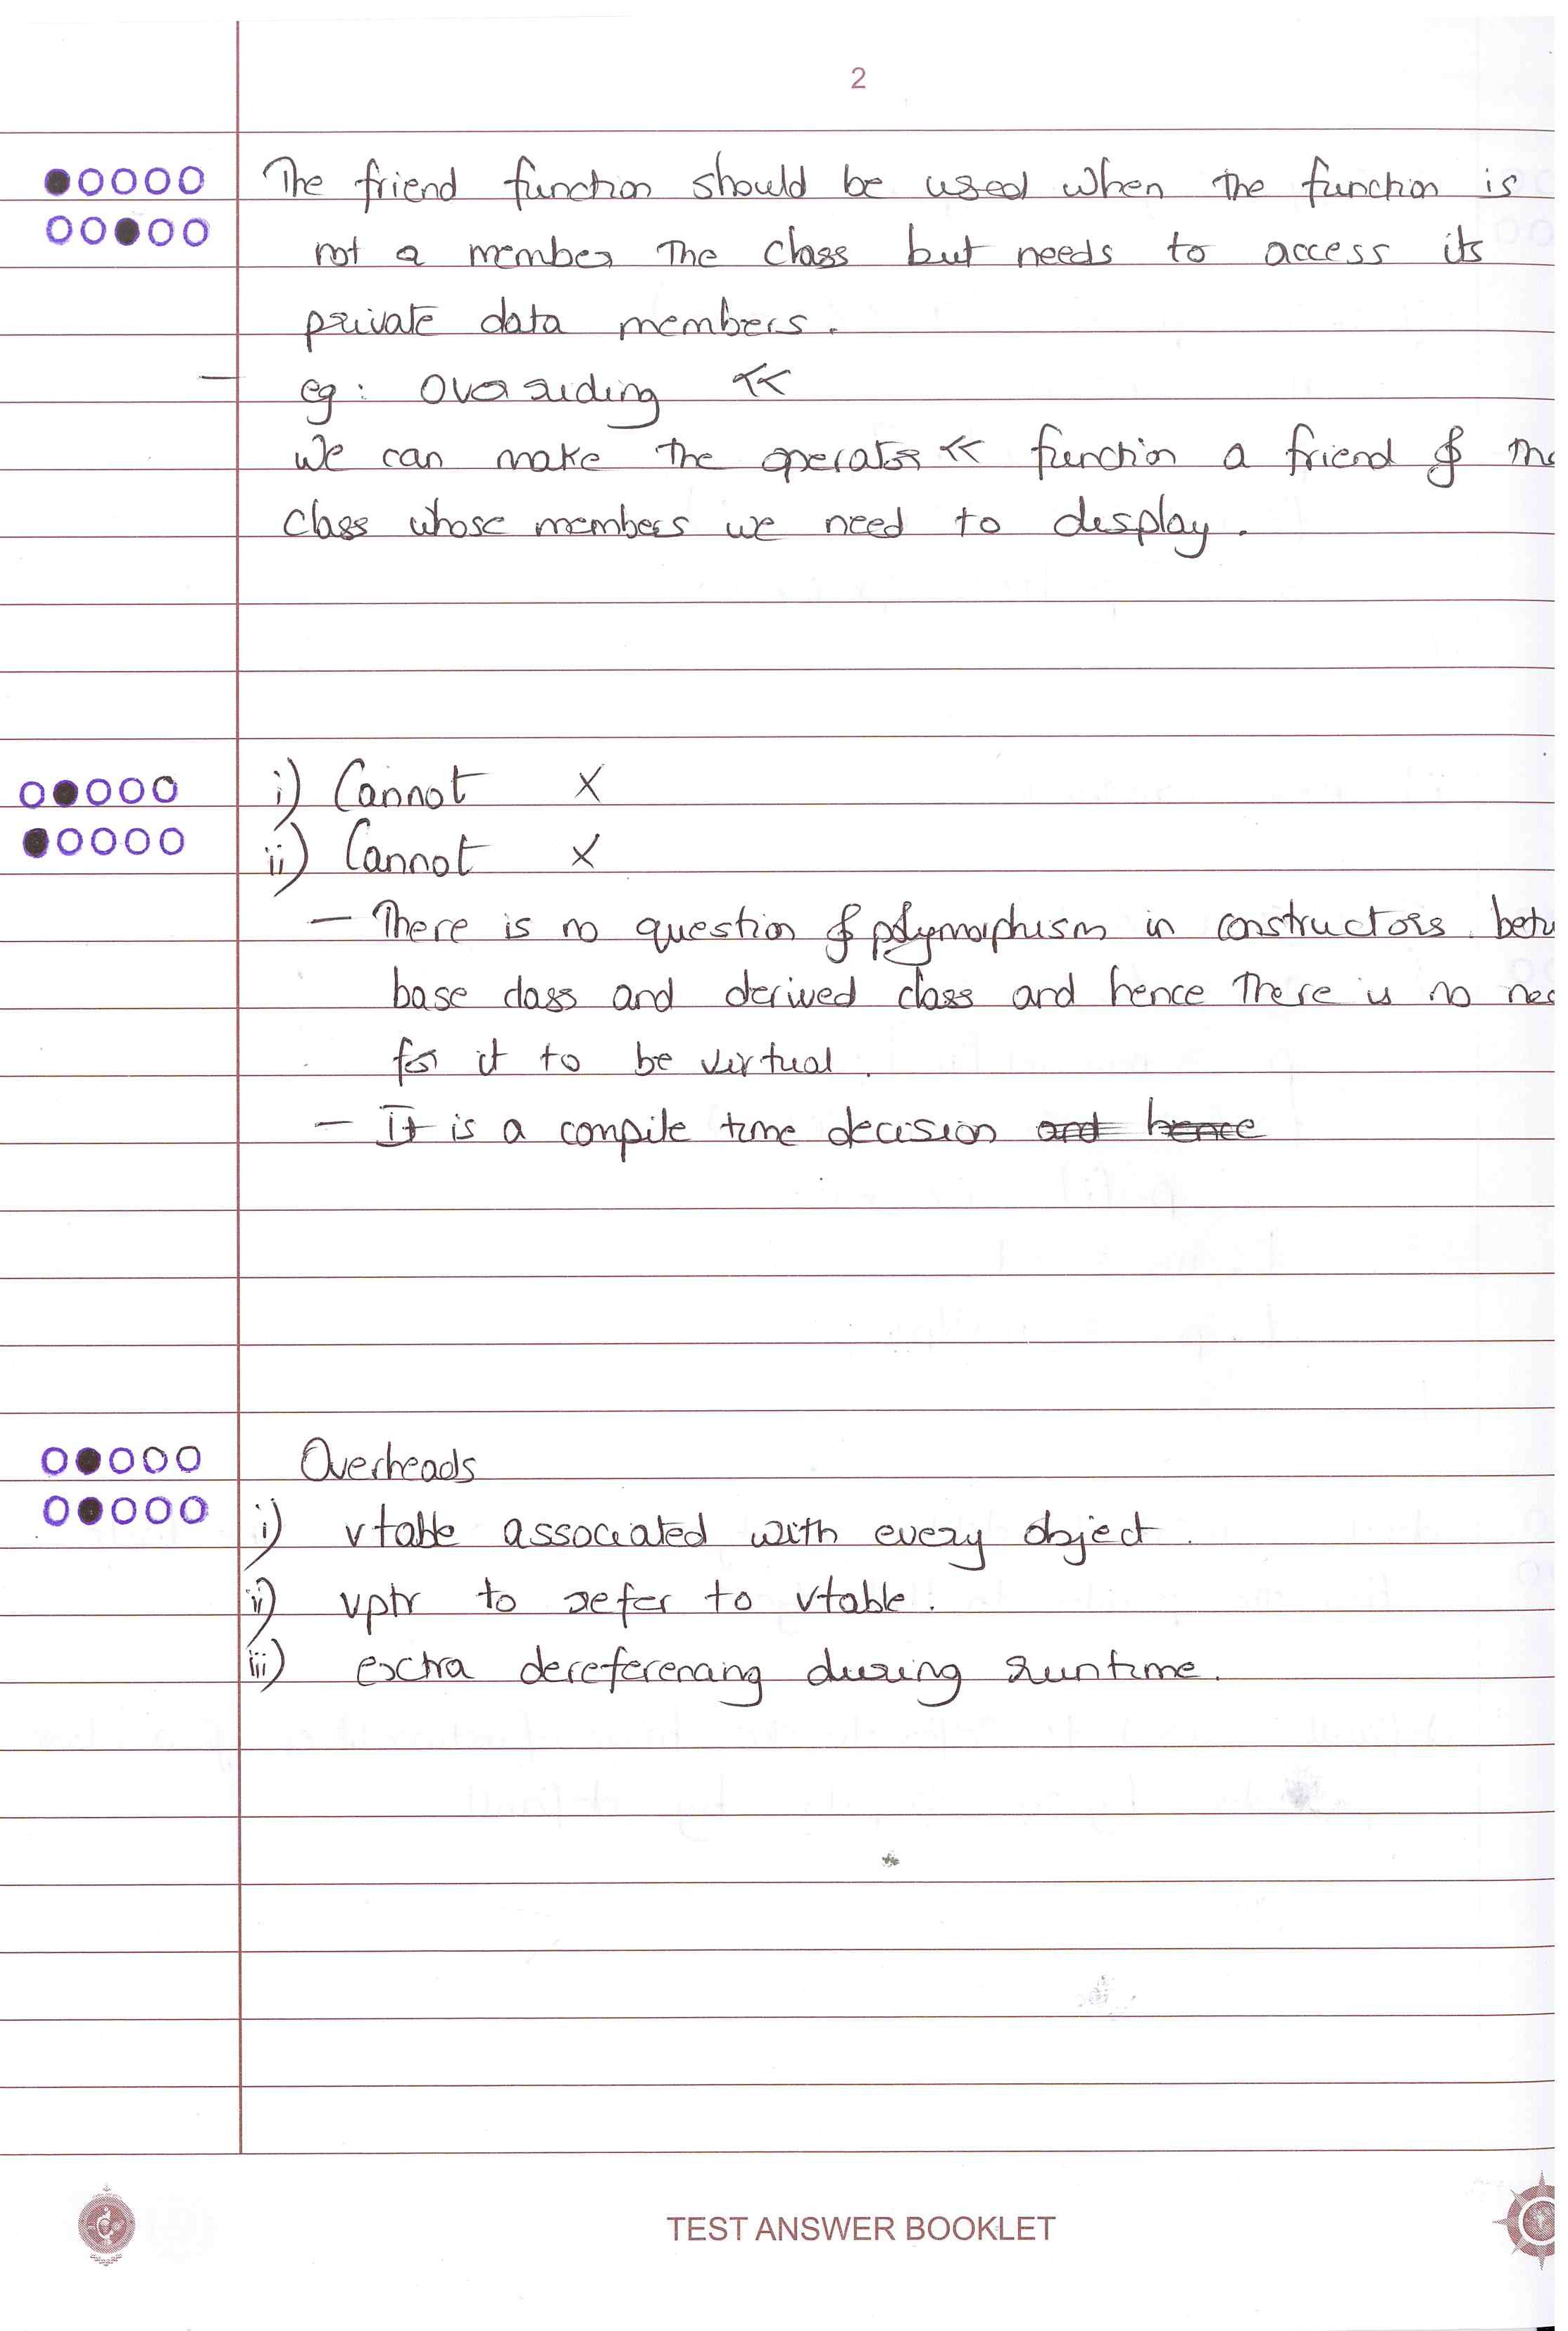 2
The friend function should be used when the function is
not a member the class but needs to access its
private data members.
— eg: Overriding <<
We can make the operator << function a friend of the
class whose members we need to display.
i) Cannot X
ii) Cannot X
— There is no question of polymorphism in constructors betw
base class and derived class and hence there is no nee
for it to be virtual.
— It is a compile time decision and hence
Overheads
i) vtable associated with every object.
ii) vptr to refer to vtable.
iii) extra dereferencing during runtime.
TEST ANSWER BOOKLET